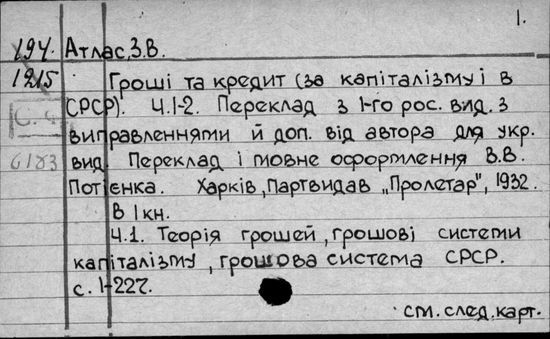 1.
194. Атлас, З.В.
1215 Гроші та кредит (за капіталізму і в
СРСР). Ч.1-2. Переклад з 1-го рос. вид. з
виправленнями й доп. від автора для укр.
6183 вид. Переклад і мовне оформлення В.В.
Потієнка. Харків, Партвидав „Пролетар", 1932.
В 1 кн.
Ч.1. Теорія грошей, грошові системи
капіталізму, грошова система СРСР.
с. 1-227.
см. след. карт.